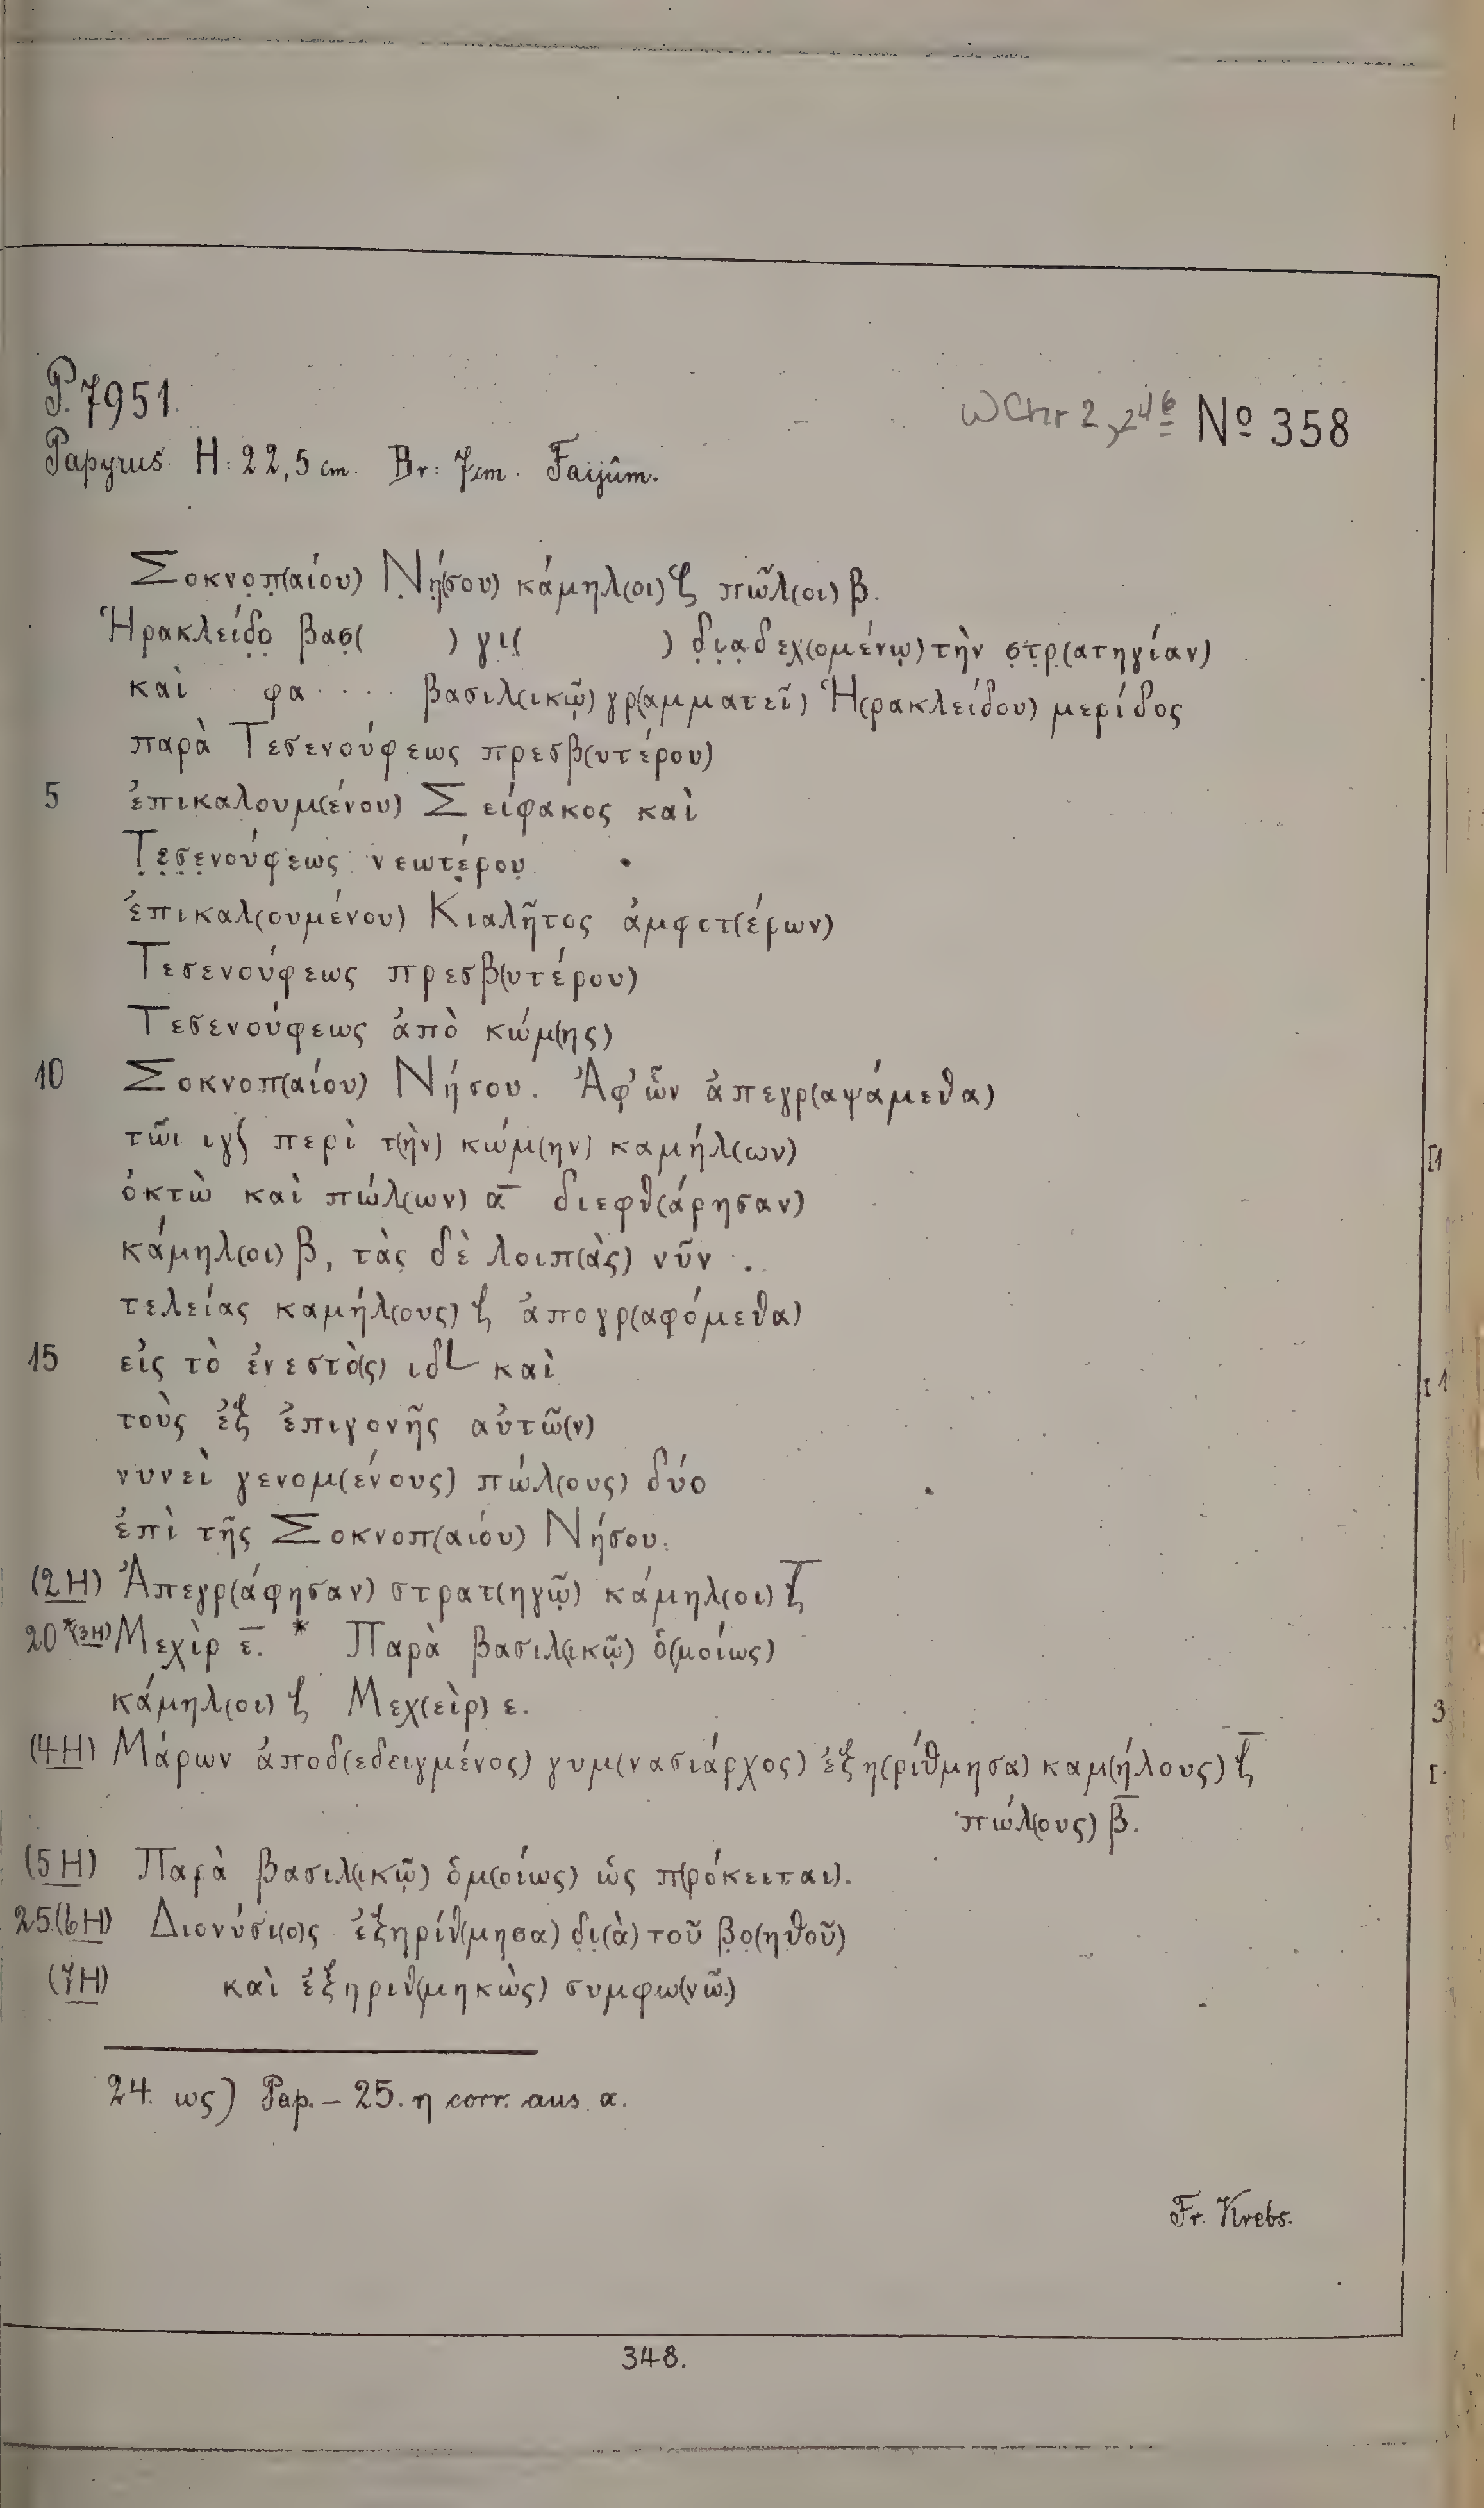 P. 7951.
WChr 2, 246 Nº 358
Papyrus. H: 22,5 cm. Br: 7 cm. Faijûm.
Σοκνο̣π̣(αίου) Ν̣ή̣(σου) κάμηλ(οι) ζ πῶλ(οι) β.
Ἡρακλείδ̣ο̣ βασ̣( ) γι̣( ) δ̣ι̣α̣δεχ(ομένῳ) τὴν σ̣τ̣ρ̣(ατηγίαν)
καὶ ·· φα ···· βασιλ(ικῷ) γρ(αμματεῖ) Ἡ(ρακλείδου) μερίδος
παρὰ Τεσενούφεως πρεσβ(υτέρου)
5 ἐπικαλουμ(ένου) Σείφακος καὶ
Τ̣ε̣σ̣ε̣νούφεως νεωτέ̣ρου̣
ἐπικαλ(ουμένου) Κιαλῆτος ἀμφοτ(έρων)
Τεσενούφεως πρεσβ(υτέρου)
Τεσενούφεως ἀπὸ κώμ(ης)
10 Σοκνοπ(αίου) Νήσου. Ἀφ' ὧν ἀπεγρ(αψάμεθα)
τῶι ιγ∫ περὶ τ(ὴν) κώμ(ην) καμήλ(ων)
ὀκτὼ καὶ πώλ(ων) α̅ διεφθ(άρησαν)
κάμηλ(οι) β, τὰς δὲ λοιπ(ὰς) νῦν .
τελείας καμήλ(ους) ζ ἀπογρ(αφόμεθα)
15 εἰς τὸ ἐνεστὸ(ς) ιδL καὶ
τοὺς ἐξ ἐπιγονῆς αὐτῶ(ν)
νυνεὶ γενομ(ένους) πώλ(ους) δύο
ἐπὶ τῆς Σοκνοπ(αίου) Νήσου.
(2H) Ἀπεγρ(άφησαν) στρατ(ηγῷ) κάμηλ(οι) ζ̅
20 *(3H) Μεχὶρ ε̅. * Παρὰ βασιλ(ικῷ) ὁ(μοίως)
κάμηλ(οι) ζ Μεχ(εὶρ) ε.
(4H) Μάρων ἀποδ(εδειγμένος) γυμ(νασιάρχος) ἐξη(ρίθμησα) καμ(ήλους) ζ̅
πώλ(ους) β̅.
(5H) Παρὰ βασιλ(ικῷ) ὁμ(οίως) ὡς π(ρόκειται).
25.(6H) Διονύσι(ο)ς ἐξηρίθ(μησα) δ̣ι̣(ὰ) τοῦ β̣ο̣(ηθοῦ)
(7H) καὶ ἐξηριθ(μηκὼς) συμφω(νῶ.)
24. ως) Pap. – 25. η corr. aus α.
Fr. Krebs.
348.